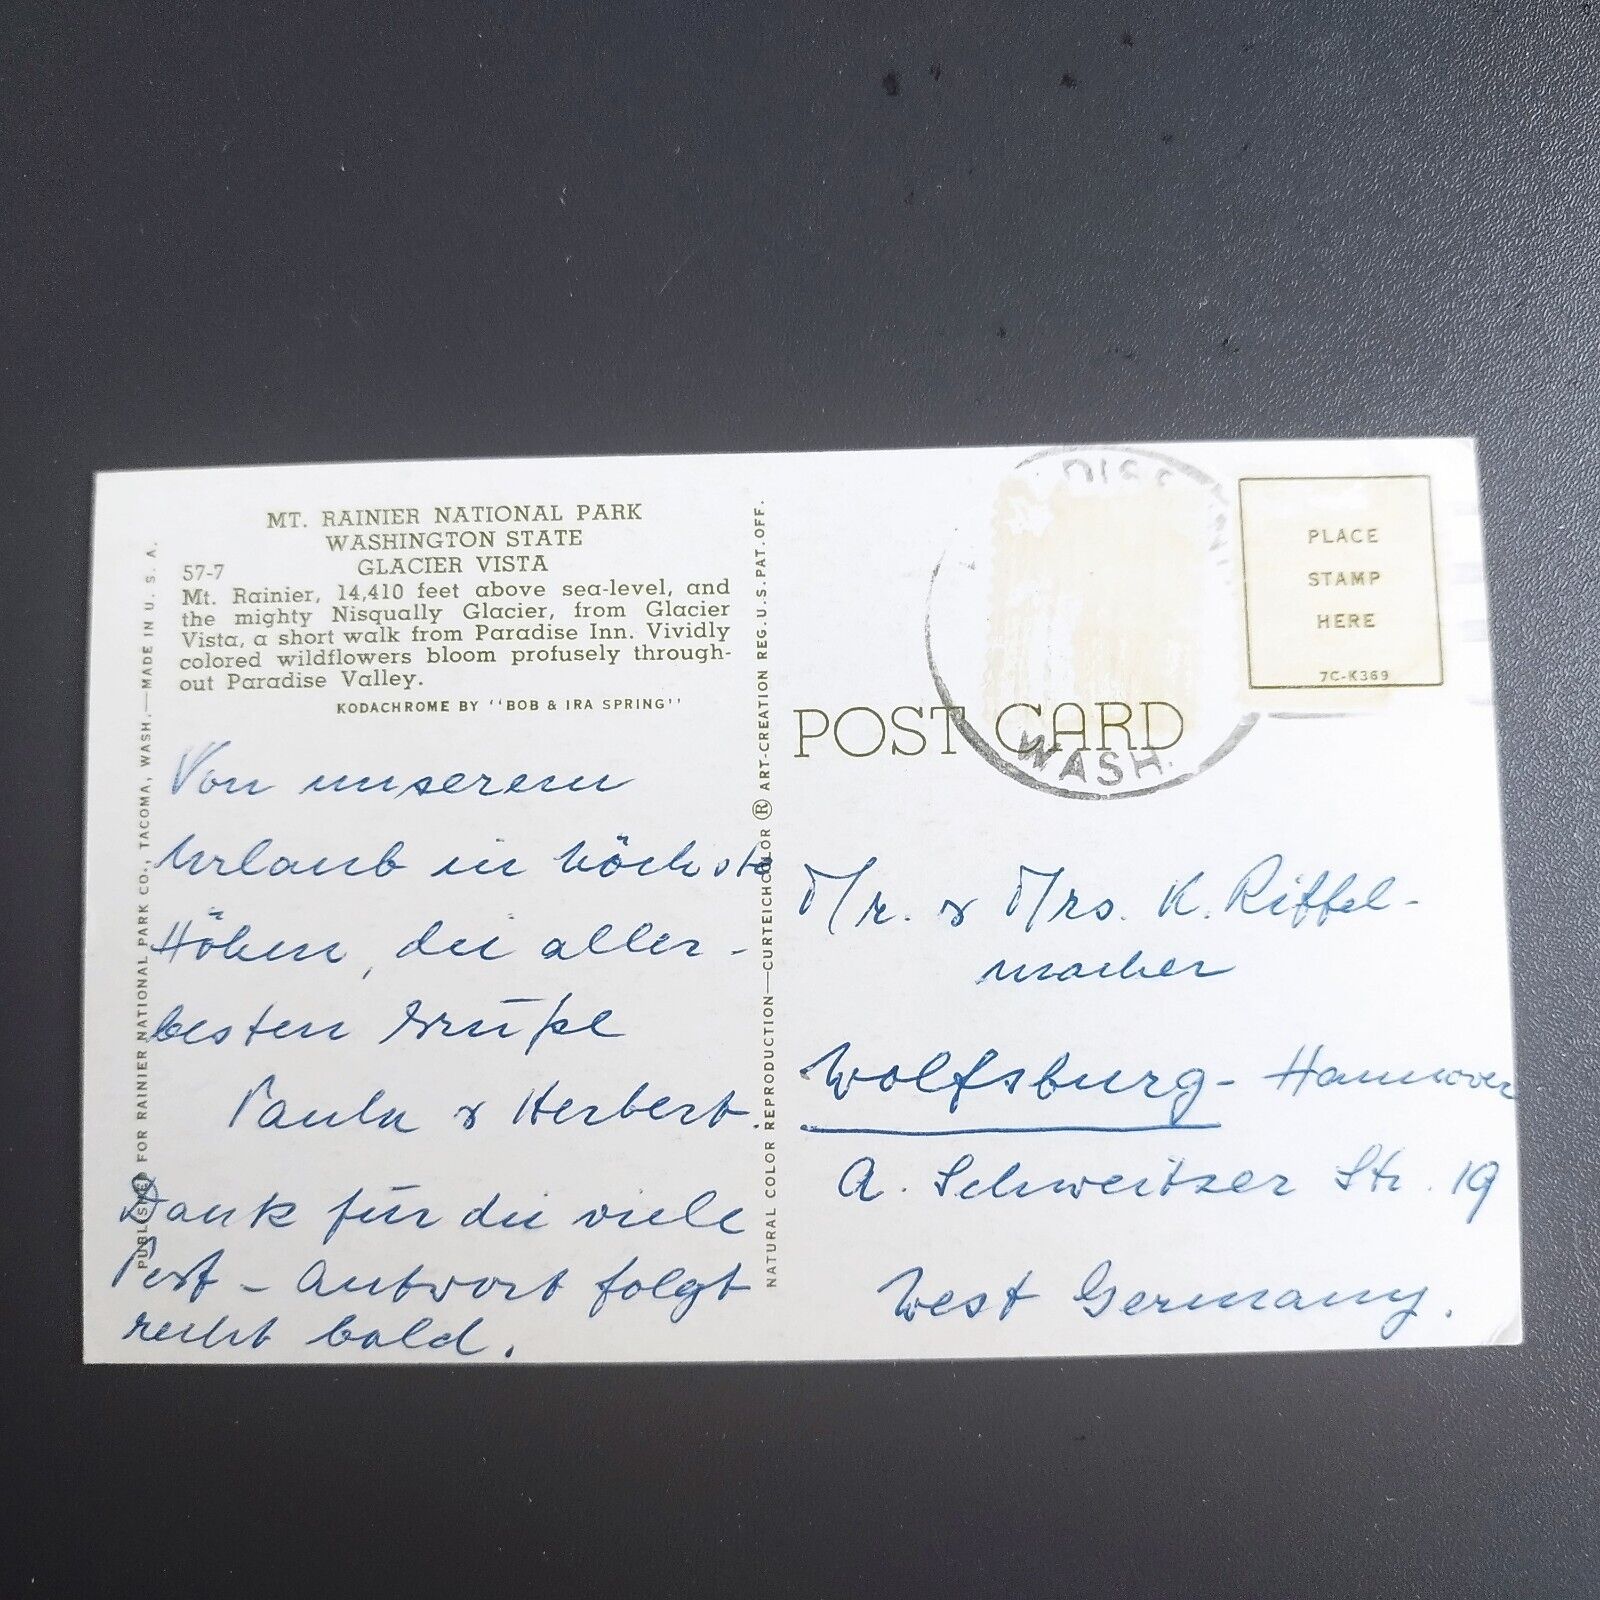 MT. RAINIER NATIONAL PARK
WASHINGTON STATE
GLACIER VISTA
57-7
Mt. Rainier, 14,410 feet above sea-level, and
the mighty Nisqually Glacier, from Glacier
Vista, a short walk from Paradise Inn. Vividly
colored wildflowers bloom profusely through-
out Paradise Valley.
KODACHROME BY "BOB & IRA SPRING"
Von unserem
Urlaub in höchste
Höhen, die aller-
besten Grüße
Paula & Herbert.
Dank für die viele
Post - Antwort folgt
recht bald.
PUBLISHED FOR RAINIER NATIONAL PARK CO., TACOMA, WASH.—MADE IN U. S. A.
NATURAL COLOR REPRODUCTION—CURTEICHCOLOR ® ART-CREATION REG. U.S. PAT. OFF.
POST CARD
WASH.
PLACE
STAMP
HERE
7C-K369
Mr. & Mrs. K. Riffel-
macher
Wolfsburg - Hannover
A. Schweitzer Str. 19
West Germany.